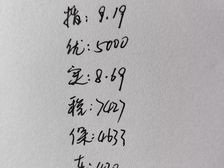 指: 9.19
优: 5000
定: 8.69
税: 7427
保: 4633